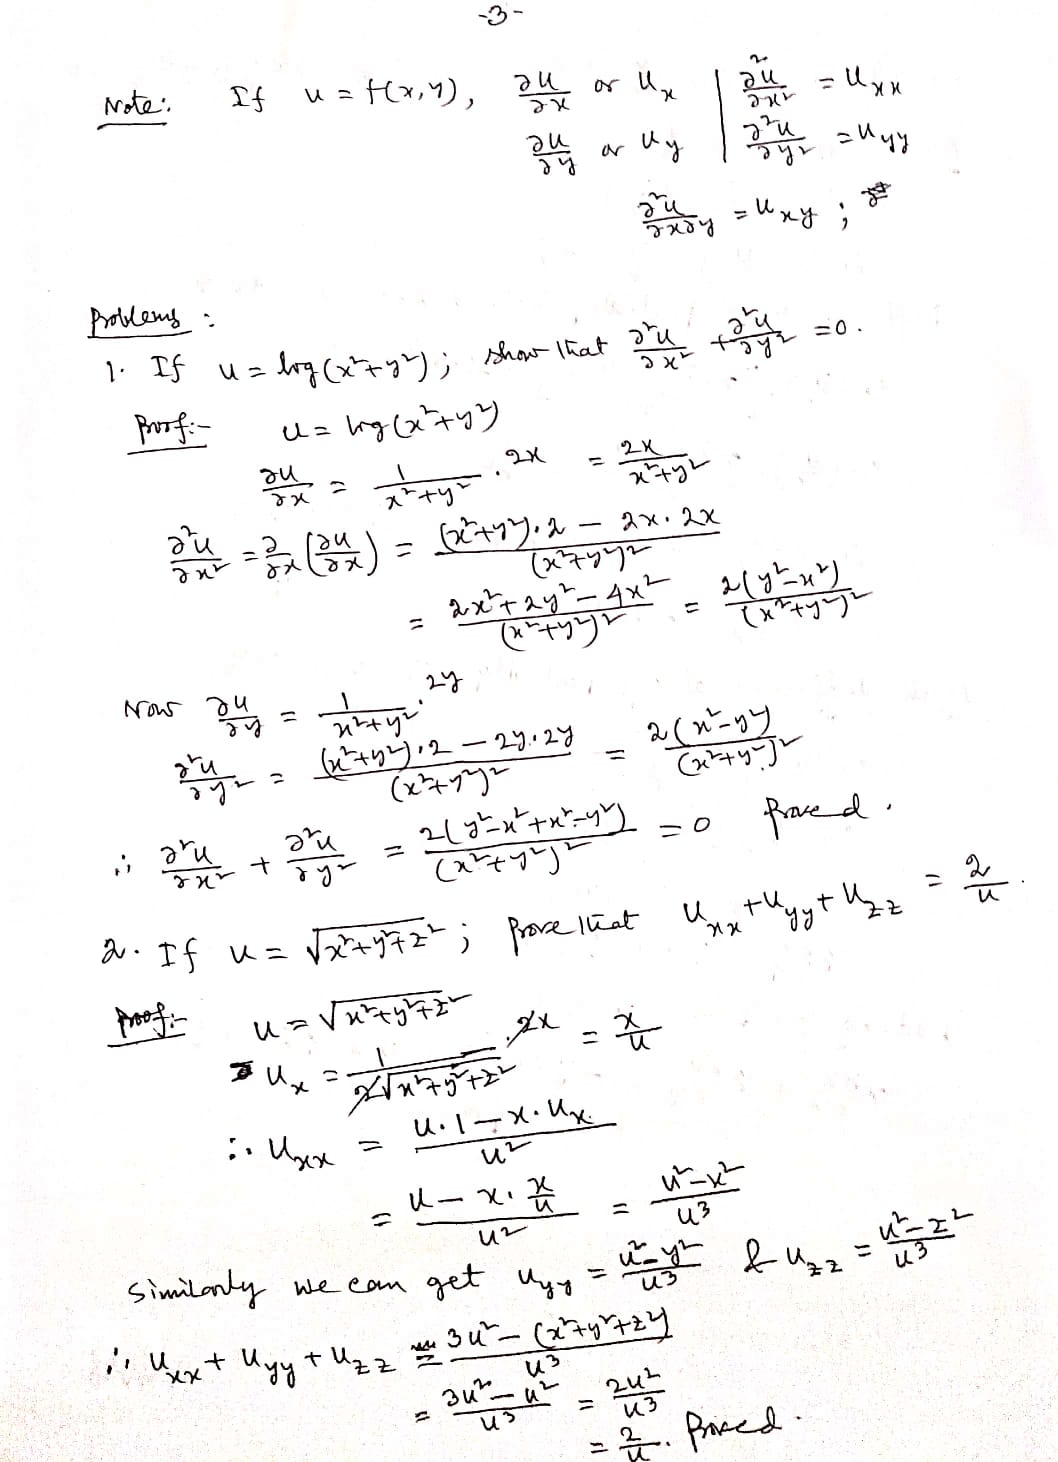 -3-
Note: If u = f(x,y), ∂u/∂x or u_x | ∂²u/∂x² = u_xx
∂u/∂y or u_y | ∂²u/∂y² = u_yy
∂²u/∂x∂y = u_xy ;
Problems :
1. If u = log(x²+y²); show that ∂²u/∂x² + ∂²u/∂y² = 0.
Proof:- u = log(x²+y²)
∂u/∂x = 1/(x²+y²) . 2x = 2x/(x²+y²)
∂²u/∂x² = ∂/∂x (∂u/∂x) = ((x²+y²).2 − 2x.2x)/(x²+y²)²
= (2x²+2y²−4x²)/(x²+y²)² = 2(y²−x²)/(x²+y²)²
Now ∂u/∂y = 1/(x²+y²) . 2y
∂²u/∂y² = ((x²+y²).2 − 2y.2y)/(x²+y²)² = 2(x²−y²)/(x²+y²)²
∴ ∂²u/∂x² + ∂²u/∂y² = 2(y²−x²+x²−y²)/(x²+y²)² = 0 Proved.
2. If u = √(x²+y²+z²) ; Prove that u_xx + u_yy + u_zz = 2/u.
Proof:- u = √(x²+y²+z²)
u_x = 1/(2√(x²+y²+z²)) . 2x = x/u
∴ u_xx = (u.1 − x.u_x)/u²
= (u − x. x/u)/u² = (u²−x²)/u³
Similarly we can get u_yy = (u²−y²)/u³ & u_zz = (u²−z²)/u³
∴ u_xx + u_yy + u_zz = (3u² − (x²+y²+z²))/u³
= (3u²−u²)/u³ = 2u²/u³
= 2/u. Proved.